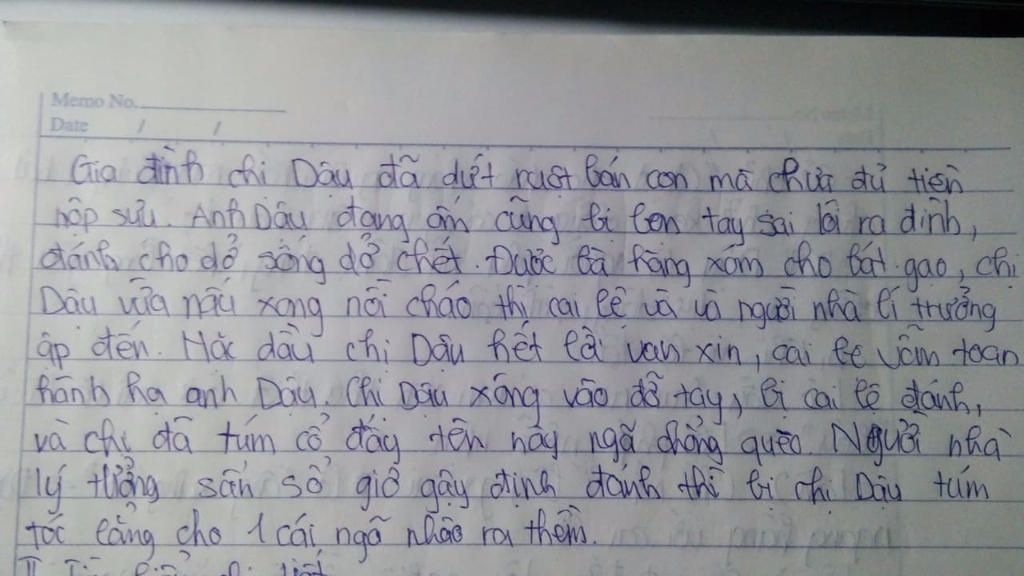 Memo No.
Date / /
Gia đình chị Dậu đã dứt ruột bán con mà chưa đủ tiền
nộp sưu. Anh Dậu đang ốm cũng bị bọn tay sai lôi ra đình,
đánh cho dở sống dở chết. Được bà hàng xóm cho bát gạo, chị
Dậu vừa nấu xong nồi cháo thì cai lệ và và người nhà lí trưởng
ập đến. Mặc dầu chị Dậu hết lời van xin, cai lệ vẫn toan
hành hạ anh Dậu. Chị Dậu xông vào đỡ tay, bị cai lệ đánh,
và chị đã túm cổ đẩy tên này ngã chỏng quèo. Người nhà
lý tưởng sấn sổ giơ gậy định đánh thì bị chị Dậu túm
tóc lẳng cho 1 cái ngã nhào ra thềm.